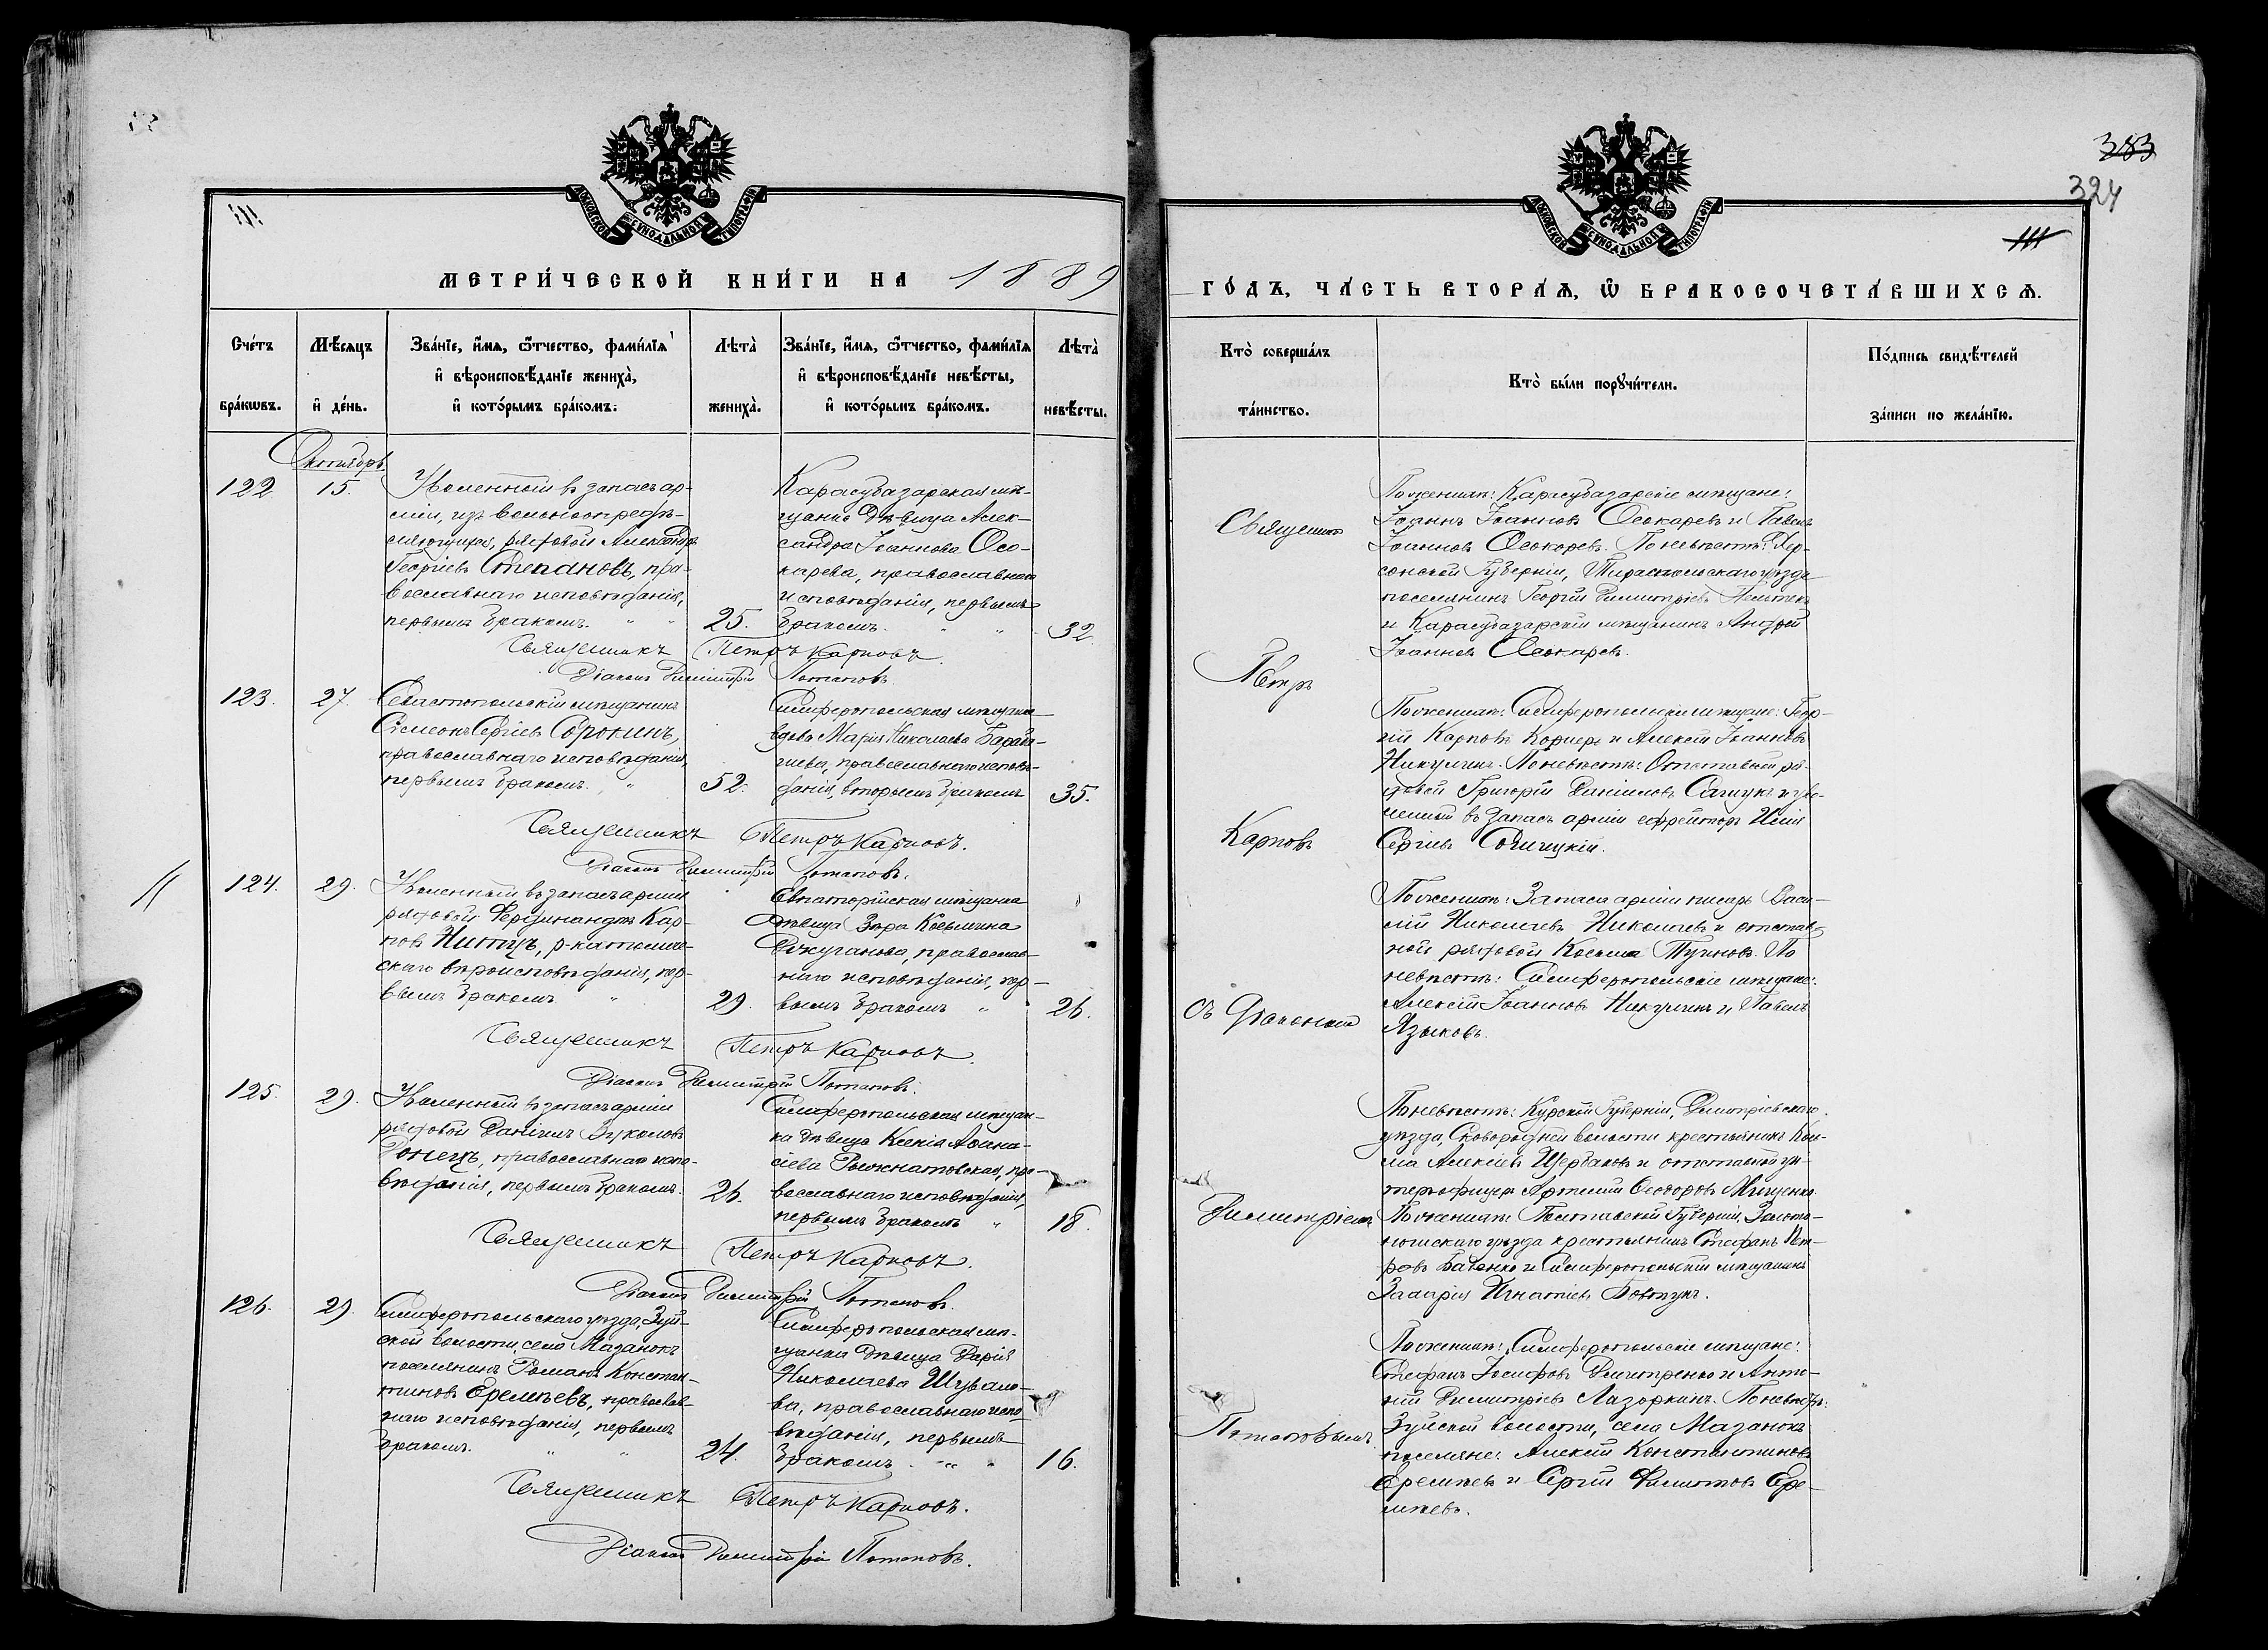 МОСКОВСКОЙ СѴНОДАЛЬНОЙ ТИПОГРАФІИ
МЕТРИ́ЧЕСКОЙ КНИ́ГИ НА 1889
Сче́тъ бра́кѡвъ.
Мѣ́сѧцъ и҆ де́нь.
Зва́нїе, и҆́мѧ, ѻ҆́тчество, фами́лїѧ
и҆ вѣроисповѣ́данїе жениха̀,
и҆ кото́рымъ бра́комъ.
Лѣта̀ жениха̀.
Зва́нїе, и҆́мѧ, ѻ҆́тчество, фами́лїѧ
и҆ вѣроисповѣ́данїе невѣ́сты,
и҆ кото́рымъ бра́комъ.
Лѣта̀ невѣ́сты.
Октябрь
122
15.
Уволенный въ запасъ ар-
міи, изъ вольноопредѣ-
ляющихся, рядовой Александръ
Георгіевъ Степановъ, пра-
вославнаго исповѣданія,
первымъ бракомъ. " "
25.
Карасубазарская мѣ-
щанка дѣвица Алек-
сандра Іоаннова Осо-
карева, православнаго
исповѣданія, первымъ
бракомъ. " "
32.
Священникъ Петръ Карповъ.
Діаконъ Димитрій Потаповъ
123.
27.
Севастопольскій мѣщанинъ
Сімеонъ Сергіевъ Сорокинъ,
православнаго исповѣданія,
первымъ бракомъ. "
52.
Симферопольская мѣщанка
вдова Марія Николаева
православнаго исповѣ-
данія, вторымъ бракомъ
35.
Священникъ Петръ Карповъ.
Діаконъ Димитрій Потаповъ.
124.
29.
Уволенный въ запасъ арміи
рядовой Фердинандъ Кар-
ловъ Нитцъ, р-католиче-
скаго вѣроисповѣданія, пер-
вымъ бракомъ "
29.
Евпаторійская мѣщанка
дѣвица Косьмина
православ-
наго исповѣданія, пер-
вымъ бракомъ "
26.
Священникъ Петръ Карповъ.
Діаконъ Димитрій Потаповъ.
125.
29.
Уволенный въ запасъ арміи
рядовой Даніилъ Вуколовъ
Донецъ, православнаго испо-
вѣданія, первымъ бракомъ.
26.
Симферопольская мѣщан-
ка дѣвица Ксенія Аѳана-
сіева пра-
вославнаго исповѣданія,
первымъ бракомъ "
18.
Священникъ Петръ Карповъ.
Діаконъ Димитрій Потаповъ.
126.
29.
Симферопольскаго уѣзда, Зуй-
ской волости, села Мазанокъ
поселянинъ Романъ Констан-
тиновъ Еремѣевъ, православ-
наго исповѣданія, первымъ
бракомъ. " "
24.
Симферопольская мѣ-
щанка дѣвица Дарія
Николаева Шувало-
ва, православнаго испо-
вѣданія, первымъ
бракомъ. " "
16.
Священникъ Петръ Карповъ.
Діаконъ Димитрій Потаповъ.
383
324
МОСКОВСКОЙ СѴНОДАЛЬНОЙ ТИПОГРАФІИ
111
ГО́ДЪ, ЧА́СТЬ ВТОРА́Ѧ, Ѽ БРАКОСОЧЕТА́ВШИХСѦ.
Кто̀ соверша́лъ та́инство.
Кто̀ бы́ли порꙋчи́тели.
По́дпись свидѣ́телей за́писи по жела́нїю.
Священникъ
Петръ
Карповъ
съ Діакономъ
Димитріемъ
Потаповымъ
По женихѣ: Карасубазарскіе мѣщане:
Іоаннъ Іоанновъ Осокаревъ и Павелъ
Іоанновъ Осокаревъ. По невѣстѣ: Хер-
сонской Губерніи, Тираспольскаго уѣзда
поселянинъ Георгій Димитріевъ
и Карасубазарскій мѣщанинъ Андрей
Іоанновъ Осокаревъ.
По женихѣ: Симферопольскіе мѣщане: Геор-
гій Карповъ и Алексій Іоанновъ
Никулинъ. По невѣстѣ: Отставной ря-
довой Григорій Даніиловъ и уво-
ленный въ запасъ арміи ефрейторъ Илія
Сергіевъ
По женихѣ: Запаса арміи писарь Васи-
лій Николаевъ Николаевъ и отстав-
ной рядовой Косьма По
невѣстѣ: Симферопольскіе мѣщане:
Алексій Іоанновъ Никулинъ и Павелъ
Языковъ.
По невѣстѣ: Курской Губерніи, Димитріевскаго
уѣзда, волости крестьянинъ Кось-
ма Алексіевъ Щербаковъ и отставной ун-
теръ-офицеръ Артемій Ѳеодоровъ Мищенко.
По женихѣ: Полтавской Губерніи, Золото-
ношскаго уѣзда крестьянинъ Стефанъ Пет-
ровъ и Симферопольскій мѣщанинъ
Захарія Игнатіевъ Бовтунъ.
По женихѣ: Симферопольскіе мѣщане:
Стефанъ Іосифовъ Дмитренко и Анто-
ній Димитріевъ Лазоркинъ. По невѣстѣ:
Зуйской волости, села Мазанокъ
поселяне: Алексій Константиновъ
Еремѣевъ и Сергій Филиповъ Ере-
мѣевъ.